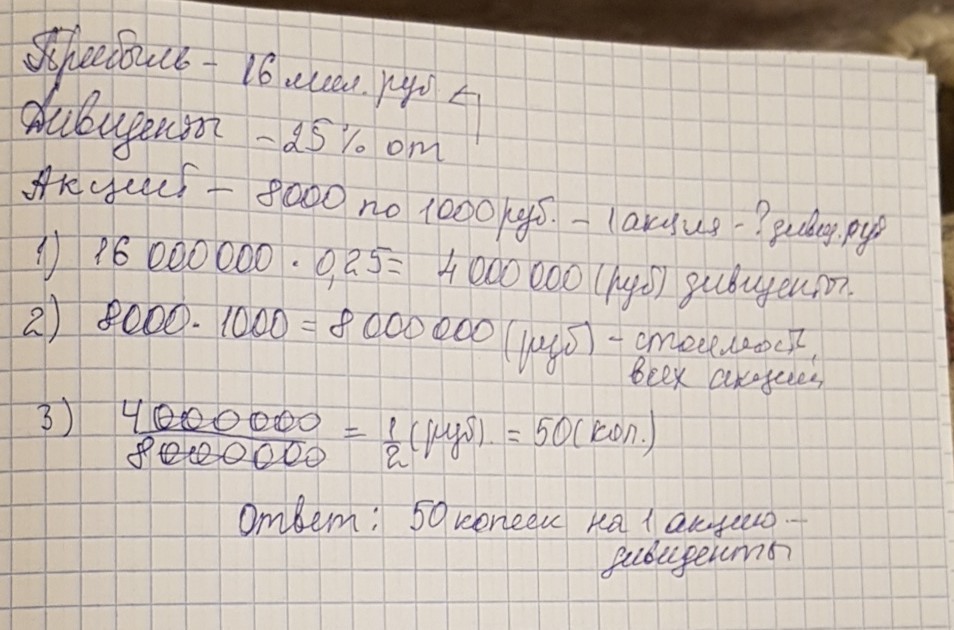 Прибыль - 16 мил. руб
Дивиденты - 25% от
Акций - 8000 по 1000 руб. - 1 акция - ? дивид. руб
1) 16 000 000 · 0,25 = 4 000 000 (руб) дивиденты.
2) 8000 · 1000 = 8 000 000 (руб) - стоимость
всех акций
3) 4000000/8000000 = 1/2 (руб). = 50 (коп.)
Ответ: 50 копеек на 1 акцию -
дивиденты